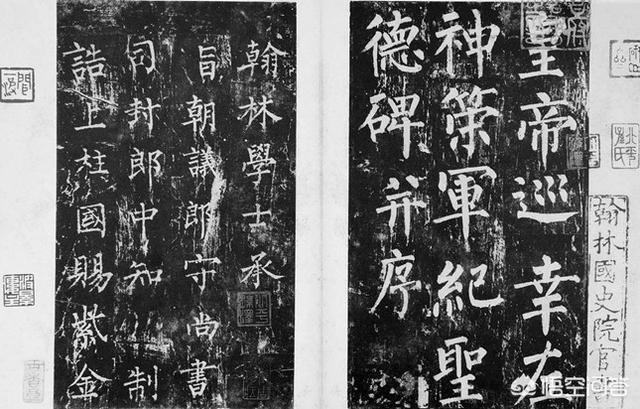 皇帝巡幸左
神策軍紀聖
德碑并序
翰林國史院官
翰林學士承
旨朝議郎守尚書
司封郎中知制
誥上柱國賜紫金
悟空问答